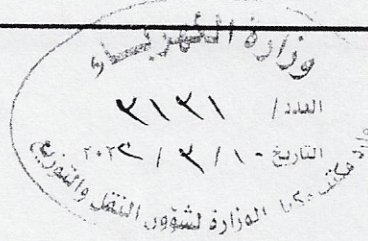 وزارة الكهرباء
العدد /
التاريخ
وارد مكتب وكيل الوزارة لشؤون النقل والتوزيع